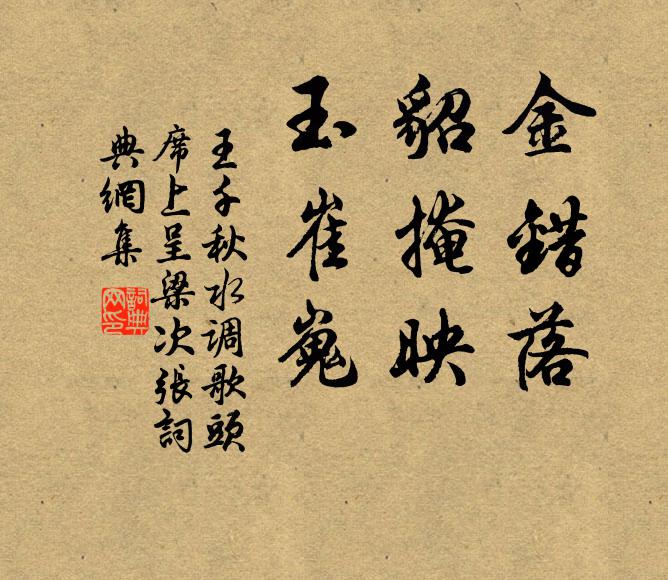 金錯落
貂掩映
玉崔嵬
王千秋水调歌頭
席上呈梁次張詞
典網集
詞典
网印